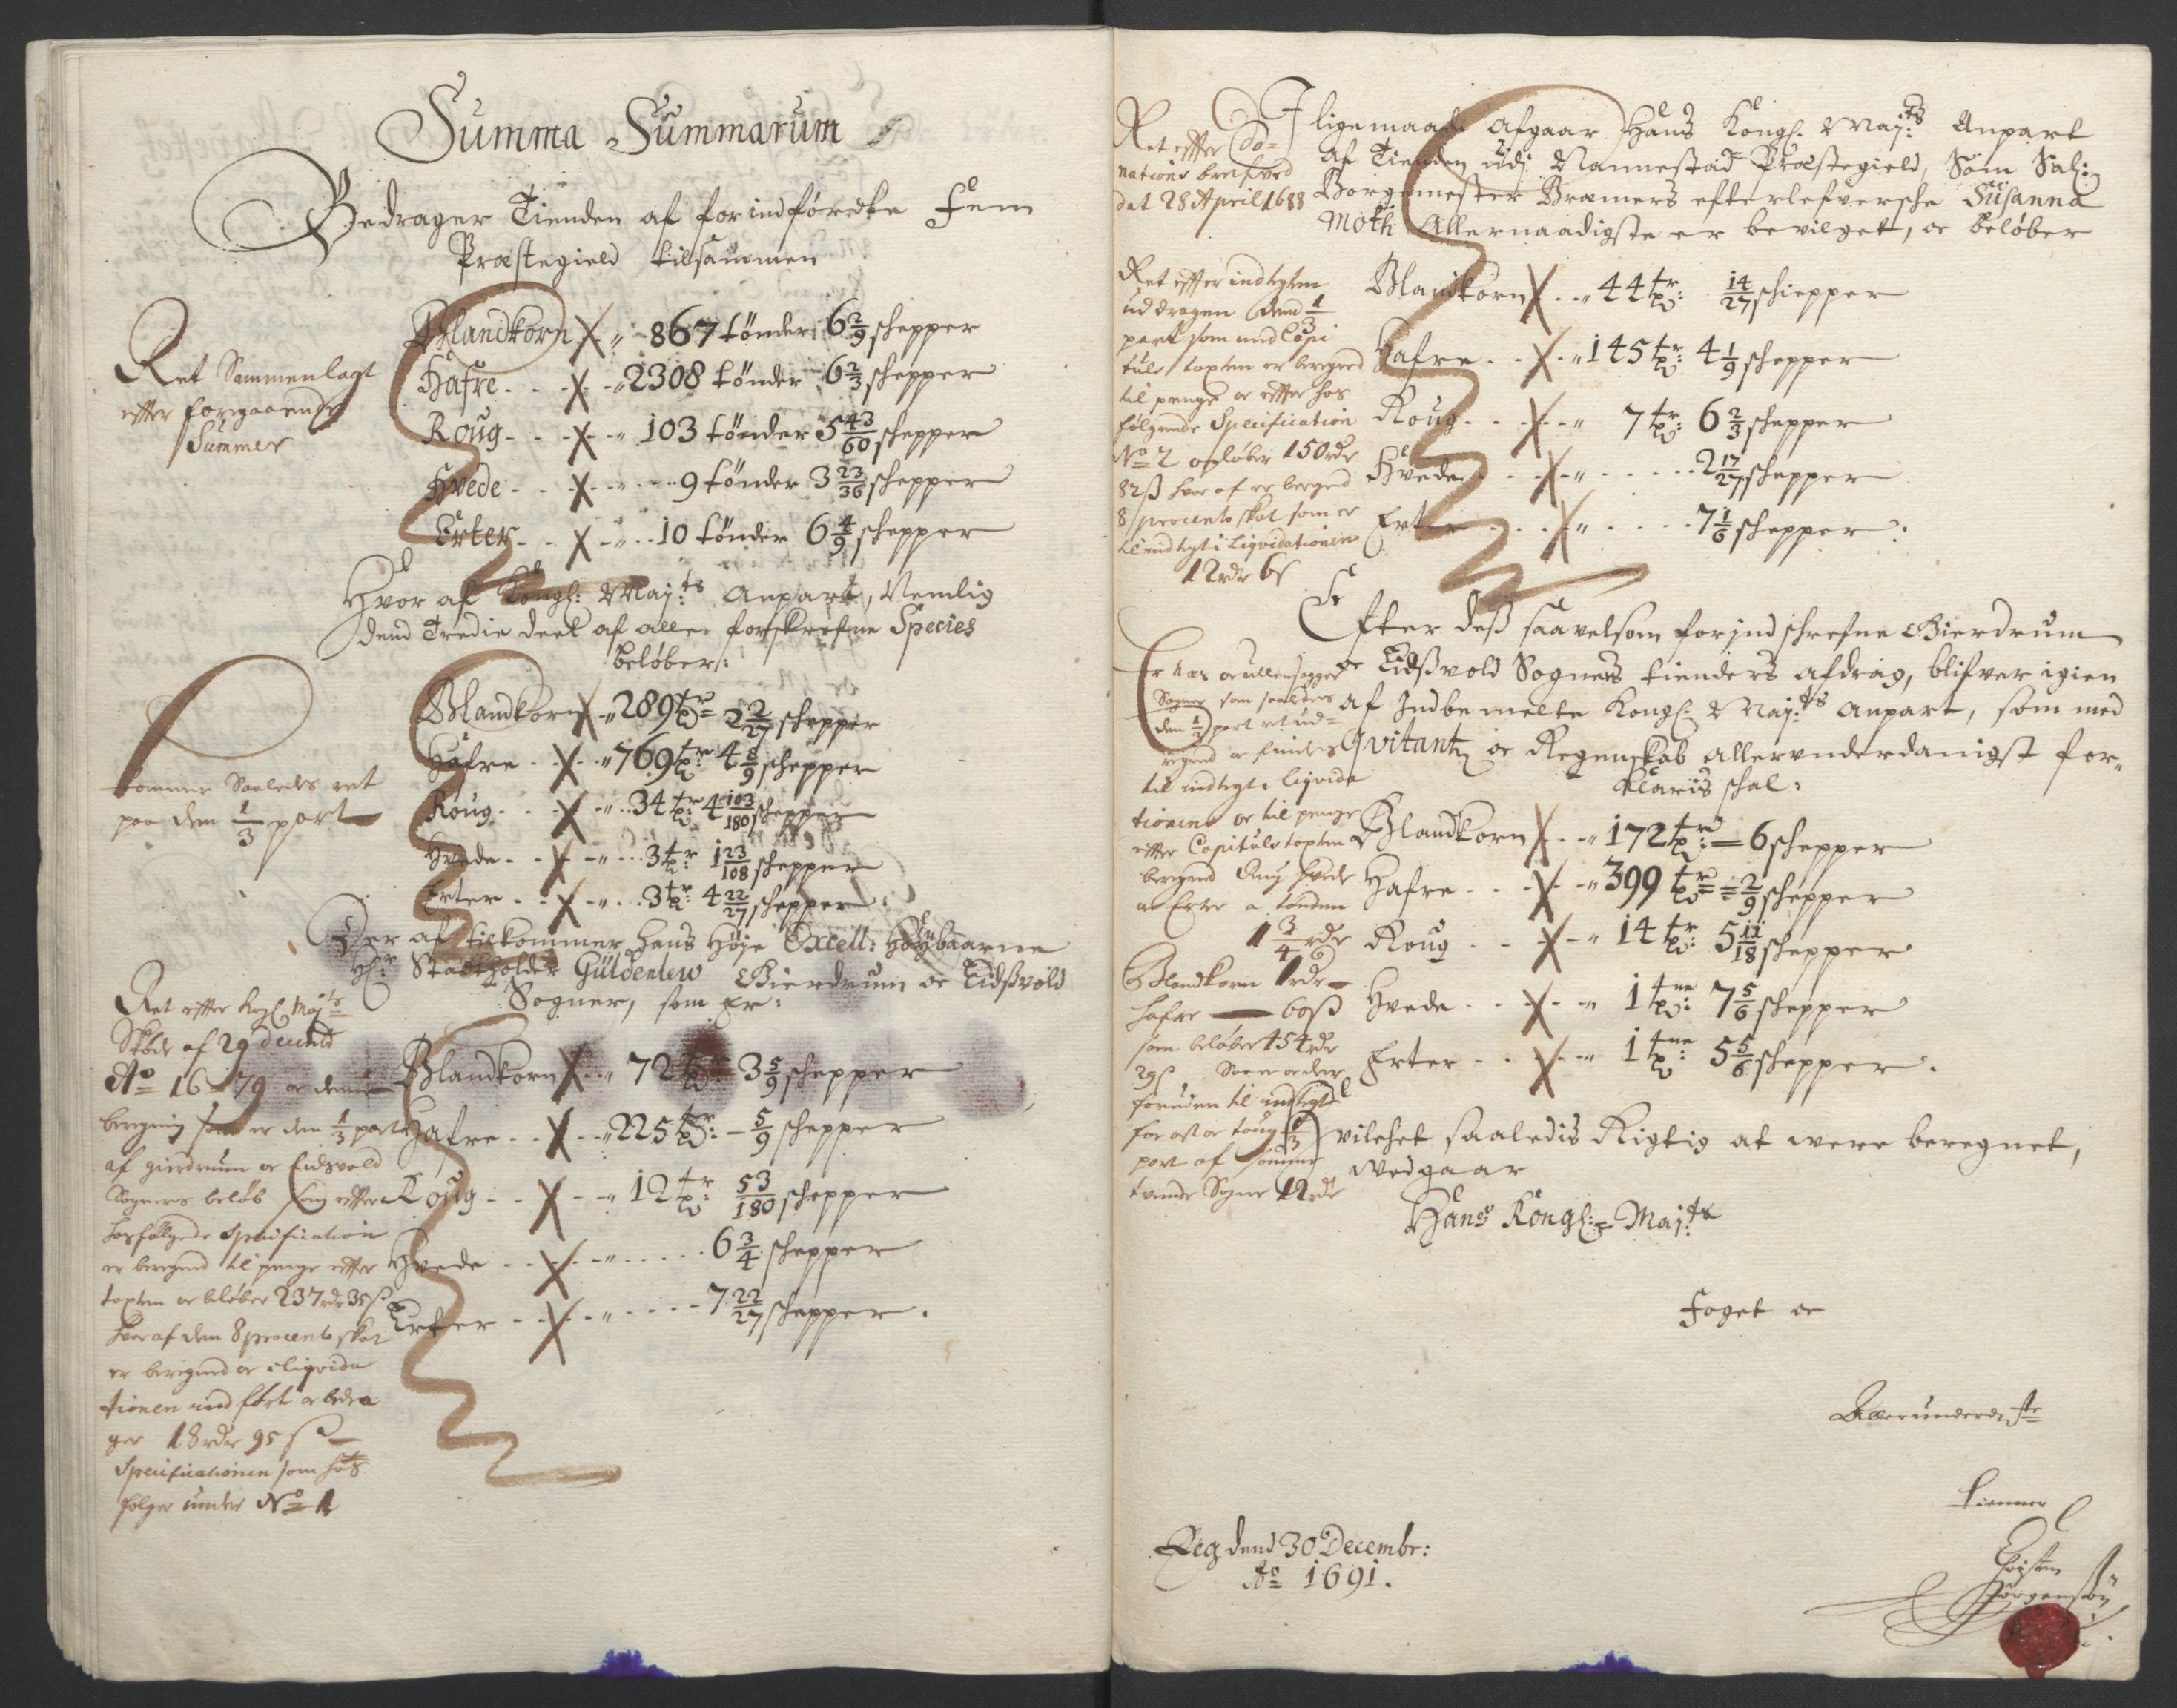 Summa Summarum
Bedrager Tienden af forindførdte Fem
Præstegield tilsammen
Ret Sammenlagt
efter foregaaende
Summer
Blandkorn X „ 867 tønder 6 2/9 schepper
Hafre - - X - „ 2308 tønder - 6 2/3 schepper
Roug - - X - „ 103 tønder 5 43/60 schepper
Hvede - - X - „ - - 9 tønder 3 23/36 schepper
Erter - - X - „ - - 10 tønder 6 4/9 schepper
Hvor af Kongl: Maj:ts Anpart, Nemlig
dend Tredie deel af alle forskrefne Species
beløber:
kommer Saaledes ret
paa dem 1/3 part
Blandkorn X - „ 289 tr: = 2 2/27 schepper
Hafre - - X - „ 769 tr: 4 8/9 schepper
Roug - - X - „ - - 34 tr: 4 103/180 schepper
Hvede - - X - „ - - 3 tr: 1 23/108 schepper
Erter - - X - „ - - 3 tr: 4 22/27 schepper
Der af tilkommer hans Høje Excell: Høybaarne
Hr: Stadtholder Güldenlew Gierdrum oc Eidßvold
Sogner, som Er:
Ret efter Kogl. Maj:ts
Skøde af 29 decemb
Ao 1679 oc denne
beregning som er den 1/3 part
af gierdrum oc Eidsvold
Sogners beløb som efter
hosfølgede Specification
er beregned til penge efter
taxten oc beløber 237 rdr 35 ß
hvor af dem 8 procento skat
er beregned oc i liqvida
tionen indført oc bedra
ger 18 rdr 95 ß
Specificationen som hos
følger under No 1
Blandkorn X - „ 72 tr: 3 5/9 schepper
Hafre - - X - „ 225 tr: - 5/9 schepper
Roug - - X - „ 12 tr: 53/180 schepper
Hvede - - X - „ - - - - 6 3/4 schepper
Erter - - X - „ - - - - 7 22/27 schepper.
Ret efter Do-
nations bref
dat 28 April 1688
I ligemaade afgaar Hans Kongl. Maj:ts Anpart
af Tienden udj Nannestad Præstegield, Som Sal:
Borgemester Bræmers efterlefversche Süsanna
Moth Allernaadigste er bevilget, oc beløber
Ret efter indtegten
uddragen dend 1/3
part som med Capi
tuls taxten er beregned
til penge oc efter hos
følgende Specification
No 2 beløber 150 rdr
82 ß hvor af er beregned
8 procento skat som er
til indtegt i Liqvidationen
12 rdr 6 ß
Blandkorn X - - „ 44 tr: 14/27 schiepper
Hafre - - X - „ 145 tr: 4 1/9 schepper
Roug - - X - - „ 7 tr: 6 2/3 schepper
Hvede - - X - „ - - - - 2 17/27 schepper
Erter - - X „ - - - - 7 1/6 schepper:
Efter deß saavelsom forjndschrefne Gierdrum
oc Eidßvold Sogners tienders afdrag, blifver igien
af Indbemelte Kongl. Maj:ts Anpart, som med
Qvitantz oc Regenskab allerunderdanigst for„
klaris schal:
Er næs oc ullensagger
Sogner som saaledes
den 1/3 part ret ud-
regned oc findes
til indtegt i liqvida
tionen oc til penge
efter Capituls taxten
beregned hvede
oc Erter a tønden
1 3/4 rdr
Blandkorn 1 rdr
hafre — 60 ß
som beløber 454 rdr
29 ß
foruden til indtegt
for 1/3
part af samme
tvende Sogne 12 rdr
Blandkorn X - - „ 172 tr: = 6 schepper
Hafre - - X - „ 399 tr: = 2/9 schepper
Roug - - X - „ 14 tr: 5 11/18 schepper
Hvede - - X - - „ 1 tne: 7 5/6 schepper
Erter - - X - - „ 1 tne: 5 5/6 schepper.
vilchet saaledis Rigtig at were beregnet,
vedgaar
Hans Kongl: Maj:ts
Foget oc
Allerunderd:ste
tienner
Eeg dend 30 Decembr:
Ao 1691.
Jørgensøn